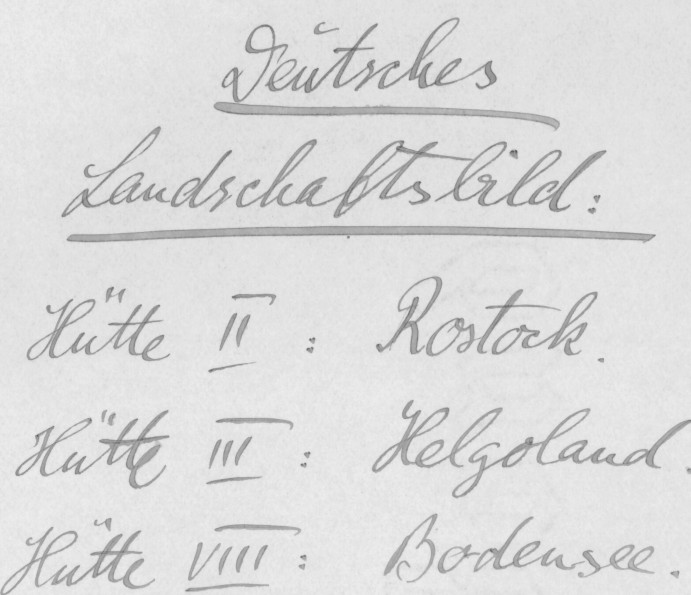 Deutsches
Landschaftsbild:
Hütte II : Rostock.
Hütte III : Helgoland.
Hütte VIII : Bodensee.